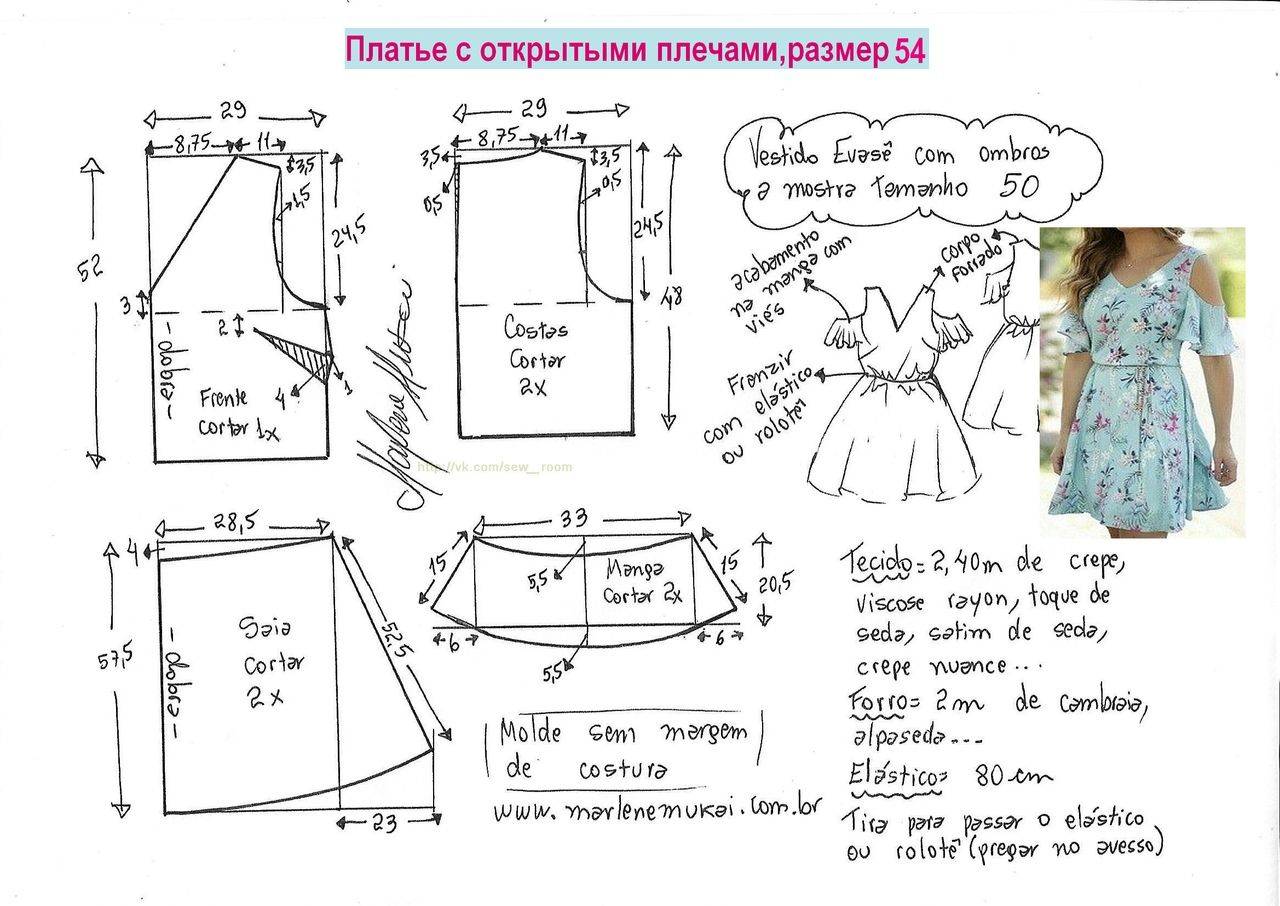 Платье с открытыми плечами,размер 54
29
8,75
11
3,5
1,5
24,5
52
3
2
4
1
- dobra -
Frente
cortar 1x
29
8,75
11
3,5
3,5
0,5
0,5
24,5
48
Costas
Cortar
2x
Marlene Mukai.
http://vk.com/sew__room
Vestido Evasê com ombros
a mostra Tamanho 50
acabamento
na manga com
viés
corpo
forrado
Franzir
com elástico
ou rolotê
28,5
4
57,5
52,5
23
- dobra -
Saia
Cortar
2x
33
15
15
5,5
20,5
6
6
5,5
Manga
Cortar 2x
Molde sem margem
de costura
www.marlenemukai.com.br
Tecido= 2,40m de crepe,
viscose rayon, toque de
seda, satim de seda,
crepe nuance...
Forro= 2m de cambraia,
alpaseda...
Elástico= 80cm
Tira para passar o elástico
ou rolotê (pregar no avesso)